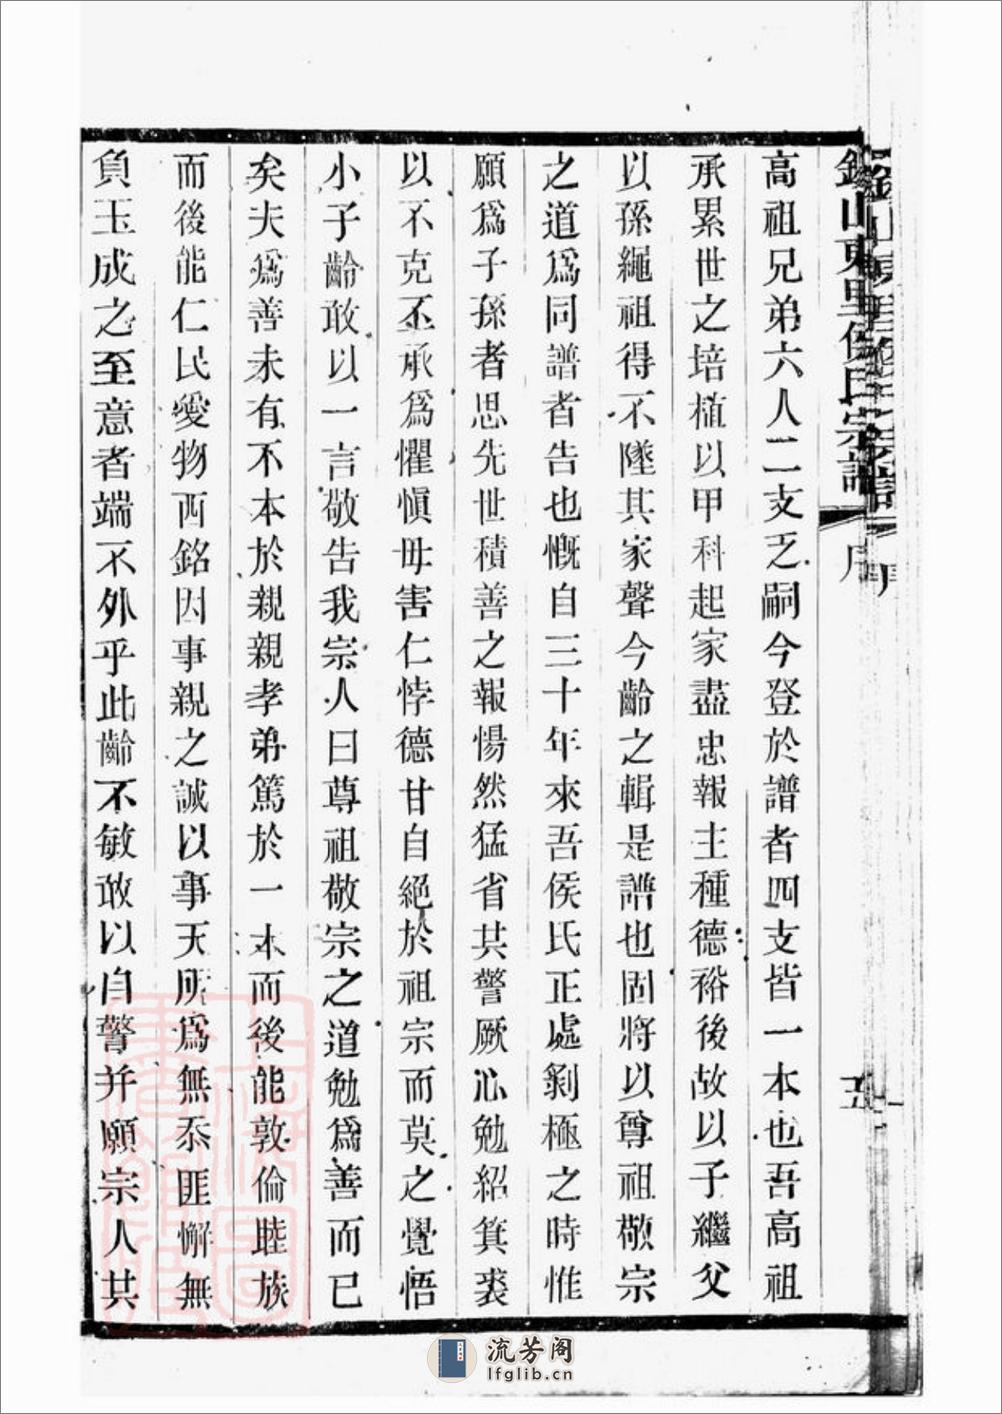 錫山東里侯氏宗譜 序 五
高祖兄弟六人二支乏嗣今登於譜者四支皆一本也吾高祖
承累世之培植以甲科起家盡忠報主種德裕後故以子繼父
以孫繩祖得不墜其家聲今齡之輯是譜也固將以尊祖敬宗
之道為同譜者告也慨自三十年來吾侯氏正處剝極之時惟
願為子孫者思先世積善之報惕然猛省共警厥心勉紹箕裘
以不克丕承為懼慎毋害仁悖德甘自絕於祖宗而莫之覺悟
小子齡敢以一言敬告我宗人曰尊祖敬宗之道勉為善而已
矣夫為善未有不本於親親孝弟篤於一本而後能敦倫睦族
而後能仁民愛物西銘因事親之誠以事天所為無忝匪懈無
負玉成之至意者端不外乎此齡不敏敢以自警并願宗人共
流芳阁
lfglib.cn